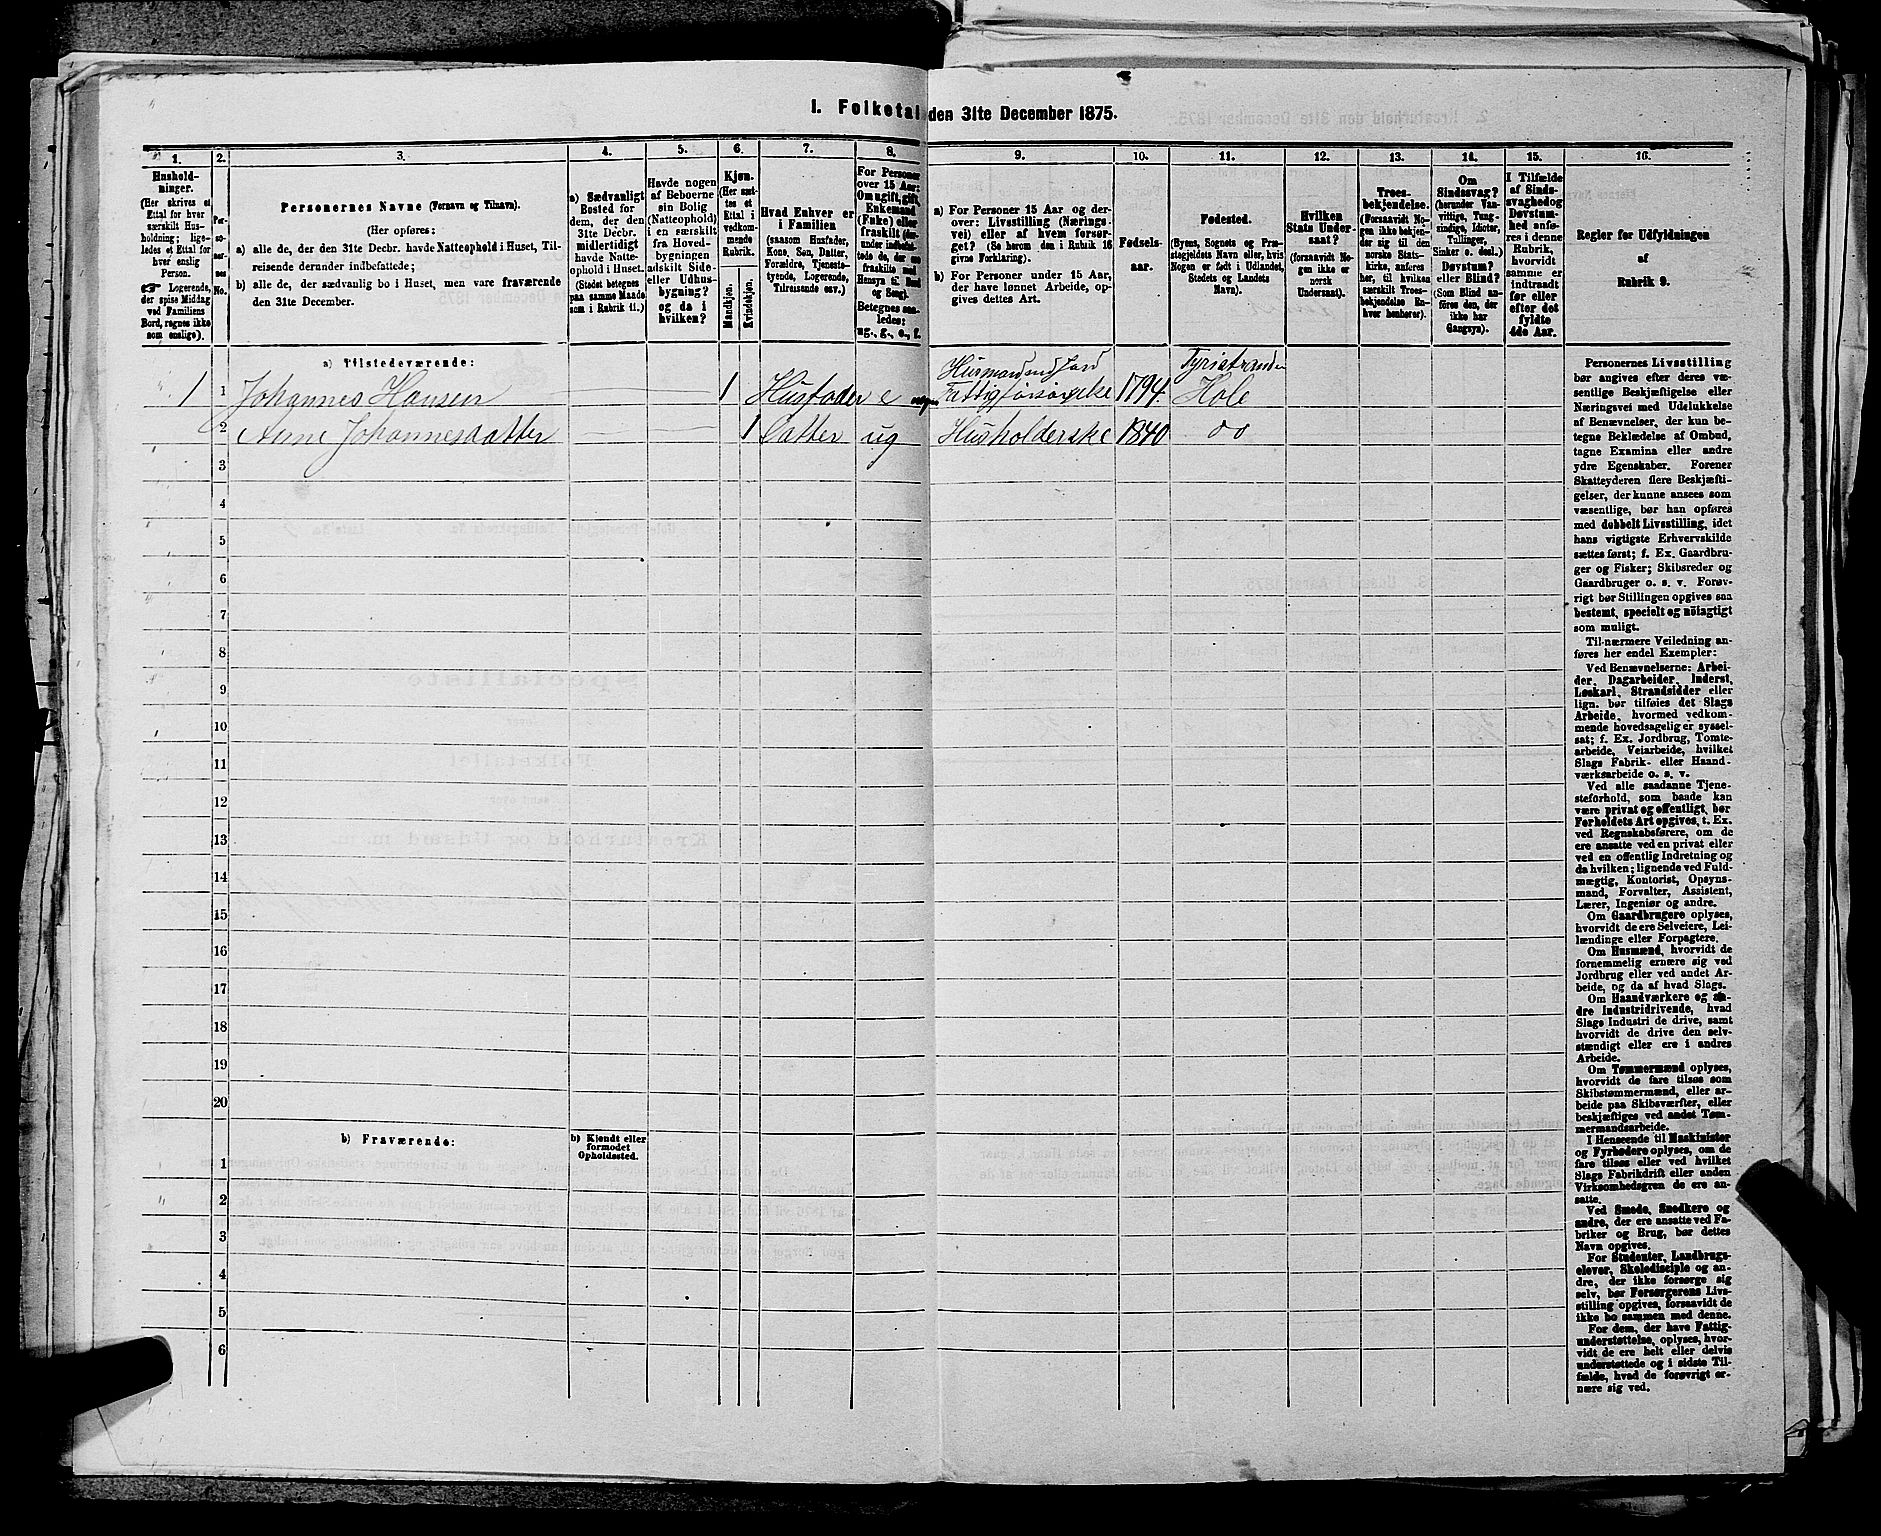 I. Folketal den 31te December 1875.
1. 2. 3. 4. 5. 6. 7. 8. 9. 10. 11. 12. 13. 14. 15. 16.
Hushold-
ninger.
(Her skrives et
Ettal for hver
særskilt Hus-
holdning; lige-
ledes et Ettal for
hver enslig
Person.
☞ Logerende,
der spise Middag
ved Familiens
Bord, regnes ikke
som enslige).
Per-
so-
ner-
nes
No.
Personernes Navne (Fornavn og Tilnavn).
(Her opføres:
a) alle de, der den 31te Decbr. havde Natteophold i Huset, Til-
reisende derunder indbefattede;
b) alle de, der sædvanlig bo i Huset, men vare fraværende
den 31te December.
a) Sædvanligt
Bosted for
dem, der den
31te Decbr.
midlertidigt
havde Natte-
ophold i Huset.
(Stedet betegnes
paa samme Maade
som i Rubrik 11.)
Havde nogen
af Beboerne
sin Bolig
(Natteophold)
i en særskilt
fra Hoved-
bygningen
adskilt Side-
eller Udhus-
bygning?
og da i
hvilken?
Kjøn.
(Her sæt-
tes et
Ettal i
vedkom-
mende
Rubrik.
Mandkjøn.
Kvindekjøn.
Hvad Enhver er
i Familien
(saasom Husfader,
Kone, Søn, Datter,
Forældre, Tjenests-
tyende, Logerende,
Tilreisende osv.)
For Personer
over 15 Aar:
Om ugift, gift,
Enkemand
(Enke) eller
fraskilt (der-
under indbefat-
tede de, der ere
fraskilte med
Hensyn til Bord
og Seng).
Betegnes saa-
ledes:
ug., g., e., f.
a) For Personer 15 Aar og der-
over: Livsstilling (Nærings-
vei) eller af hvem forsør-
get? (Se herom den i Rubrik 16
givne Forklaring).
b) For Personer under 15 Aar,
der have lønnet Arbeide, op-
gives dettes Art.
Fødsels-
aar.
Fødested.
(Byens, Sognets og Præ-
stegjeldets Navn eller, hvis
Nogen er født i Udlandet,
Stedets og Landets
Navn).
Hvilken
Stats Under-
saat?
(forsaavidt No-
gen ikke er
norsk
Undersaat).
Troes-
bekjendelse.
(Forsaavidt No-
gen ikke bekjen-
der sig til den
norske Stats-
kirke, anføres
her, til hvilken
særskilt Troes-
bekjendelse En-
hver henhører).
Om
Sindssvag?
(herunder Van-
vittige, Tung-
sindige, Idioter,
Tullinger,
Sinker o. desl.)
Døvstum?
eller Blind?
(Som Blind an-
føres den, der
ikke har
Gangsyn).
I Tilfælde
af Sinds-
svaghed og
Døvstum-
hed anfø-
res i denne
Rubrik,
hvorvidt
samme er
indtraadt
før eller
efter det
fyldte
4de Aar.
Regler for Udfyldningen
af
Rubrik 9.
a) Tilstedeværende:
1 1 Johannes Hansen 1 Husfader e Husmand m/ Jord Fattigforsørgelse 1794 Tyristrander Hole
2 Anne Johannesdatter 1 Datter ug Husholderske 1840 do
3
4
5
6
7
8
9
10
11
12
13
14
15
16
17
18
19
20
b) Fraværende:
b) Kjendt eller
formodet
Opholdssted.
1
2
3
4
5
6
Personernes Livsstilling
bør angives efter deres væ-
sentlige Beskjæftigelse eller
Næringsvei med Udelukkelse
af Benævnelser, der kun be-
tegne Beklædelse af Ombud,
tagne Examina eller andre
ydre Egenskaber. Forener
Skatteyderen flere Beskjæfti-
gelser, der kunne ansees som
væsentlige, bør han opføres
med dobbelt Livsstilling, idet
hans vigtigste Erhvervskilde
sættes først; f. Ex. Gaardbru-
ger og Fisker; Skibsreder og
Gaardbruger o. s. v. Forøv-
rigt bør Stillingen opgives saa
bestemt, specielt og nöiagtigt
som muligt.
Til nærmere Veiledning an-
føres her endel Exempler:
Ved Benævnelserne: Arbei-
der, Dagarbeider, Inderst,
Løskarl, Strandsidder eller
lign. bør tilføies det Slags
Arbeide, hvormed vedkom-
mende hovedsagelig er syssel-
sat; f. Ex. Jordbrug, Tomte-
arbeide, Veiarbeide, hvilket
Slags Fabrik- eller Haand-
værksarbeide o. s. v.
Ved alle saadanne Tjene-
steforhold, som baade kan
være privat og offentligt, bør
Forholdets Art opgives, f. Ex.
ved Regnskabsførere, om de
ere ansatte ved en privat eller
ved en offentlig Indretning og
da hvilken; lignende ved Fuld-
mægtig, Kontorist, Opsyns-
mand, Forvalter, Assistent,
Lærer, Ingeniør og andre.
Om Gaardbrugere oplyses,
hvorvidt de ere Selveiere, Lei-
lændinge eller Forpagtere.
Om Husmænd, hvorvidt de
fornemmelig ernære sig ved
Jordbrug eller ved andet Ar-
beide, og da af hvad Slags.
Om Haandværkere og an-
dre Industridrivende, hvad
Slags Industri de drive, samt
hvorvidt de drive den selv-
stændigt eller ere i andres
Arbeide.
Om Tømmermænd oplyses,
hvorvidt de fare tilsøs som
Skibstømmermænd, eller ar-
beide paa Skibsværfter, eller
beskjæftiges ved andet Tøm-
mermandsarbeide.
I Henseende til Maskinister
og Fyrbødere oplyses, om de
fare tilsøs eller ved hvilket
Slags Fabrikdrift eller anden
Virksomhedsgren de ere an-
satte.
Ved Smede, Snedkere og
andre, der ere ansatte ved Fa-
briker og Brug, bør dettes
Navn opgives.
For Studenter, Landbrugs-
elever, Skoledisciple og an-
dre, der ikke forsørge sig
selv, bør Forsørgerens Livs-
stilling opgives, forsaavidt de
ikke bo sammen med denne.
For dem, der have Fattig-
understøttelse, oplyses, hvor-
vidt de ere helt eller delvis
understøttede og i sidste Til-
fælde, hvad de forøvrigt er-
nære sig ved.